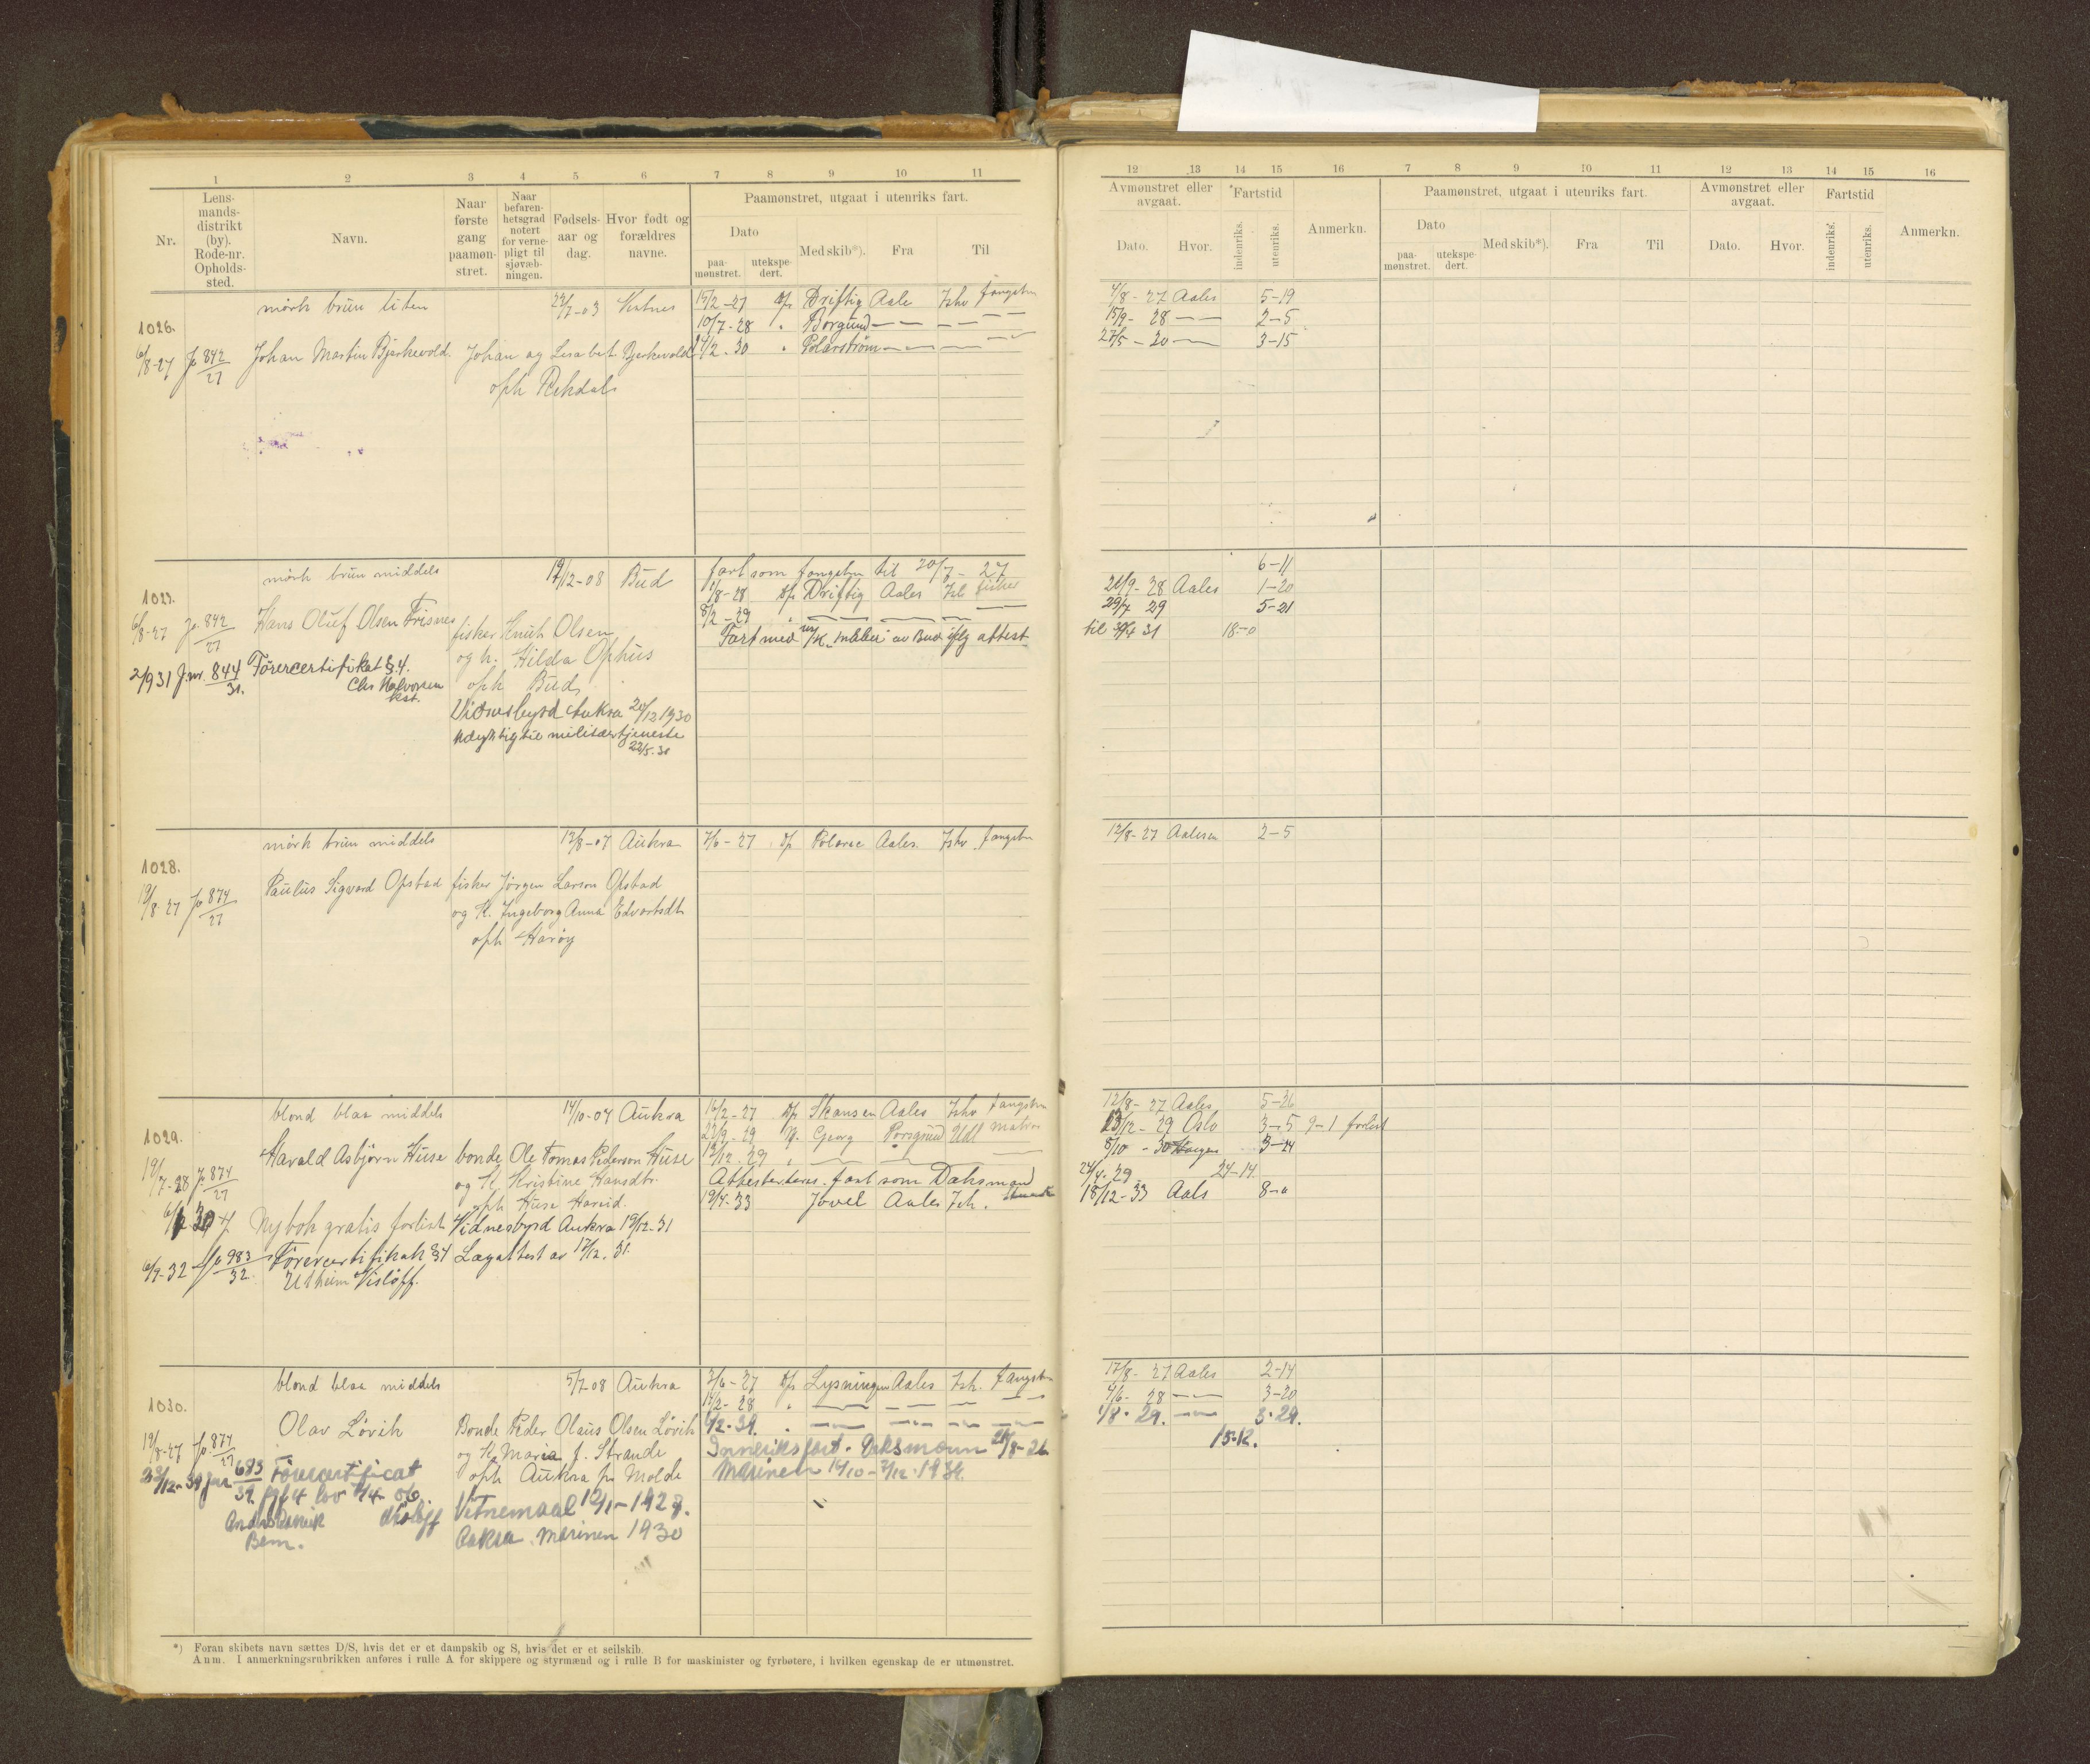 1 2 3 4 5 6 7 8 9 10 11
Nr.
Lens-
mands-
distrikt
(by).
Rode-nr.
Opholds-
sted.
Navn.
Naar
første
gang
paamøn-
stret.
Naar
befaren-
hetsgrad
notert
for verne-
pligt til
sjøvæb-
ningen.
Fødsels-
aar og
dag.
Hvor født og
forældres
navne.
Paamønstret, utgaat i utenriks fart.
Dato
paa-
mønstret.
utekspe-
dert.
Med skib*).
Fra
Til
mørk brun liten 22/7-03 15/2-27 D/s Driftig Aale Ishv fangstm
1026. 10/7-28 " Borgund — — — — —
6/8-27 Jo 842/27 Johan Martin Bjerkevold. Johan og Lisabet Bjerkevold /2-30 " Polarstrøm — — — —
oph Rekdal
mørk brun middels 19/12-08 Bud fart som fangstm til 20/7-27
1027. 11/8-28 D/s Driftig Aales Ish
6/8-27 Jo. 842/27 Hans Oluf Olsen Frisnes 8/2-29 " — — — —
fisker Knut Olsen Fart med M/K av Bud iflg attest
og h. Hilda Ophus
2/9 31 J.nr. 844/31. Førercertifikat § 4. oph Bud
Chr Halvorsen
kst.
Vidnesbyrd Aukra 20/12 1930
udyktig til militærtjeneste
22/5-31
mørk brun middels 12/8-07 Aukra 7/6-27 D/s Polaric Aales. Ishv fangstm
1028.
19/8-27 Jo 874/27 Paulus Sigvard Opstad fisker Jørgen Larson Opstad
og K. Ingeborg Anna Edvartsdt
oph Harøy
blond blaa middels 14/10-04 Aukra 16/2-27 D/s Skansen Aales Ishv fangstm
1029. 22/9-29 Georg Porsgrund Utl matros
Harald Asbjørn Huse bonde Ole Tomas Pederson Huse 12/12-29 " — — — —
19/7-28 Jo. 874/27 og K. Kristine Hansdtr. Attesteteres. fart som Dæksmand
oph Huse Harøid. 19/4-33 Jovel Aales Ish.
Ny bok gratis forlist Vidnesbyrd Aukra 19/12-31
6/9-32 Jo 983/32. Førercertifikat § 4 Lægattest av 17/12.31.
Utheim Visløff.
blond blaa middels 5/7-08 Aukra 7/6-27 D/s Lysningen Aales Ish. fangstm
1030. 14/2-28 " — — — —
Olav Løvik Bonde Peder Olaus Olsen Løvik 6/2-39. " — — — —
19/8-27 Jo. 874/27 og K. Maria f. Strande Innenriksfart. Dæksmann 20/8-26
23/12-39 Jnr 683/39 Førercertificat oph Aukra pr Molde Marinen 14/10-7/12-1934.
§ 4 lov 4/4-06. Vitnemaal 12/1-1928.
Visløff Aukra. Marinen 1930
Bem.
*) Foran skibets navn sættes D/S, hvis det er et dampskib og S, hvis det er et seilskib.
Anm. I anmerkningsrubrikken anføres i rulle A for skippere og styrmænd og i rulle B for maskinister og fyrbøtere, i hvilken egenskap de er utmønstret.
12 13 14 15 16 7 8 9 10 11 12 13 14 15 16
Avmønstret eller
avgaat.
Dato.
Hvor.
Fartstid
indenriks.
utenriks.
Anmerkn.
Paamønstret, utgaat i utenriks fart.
Dato
paa-
mønstret.
utekspe-
dert.
Med skib*).
Fra
Til
Avmønstret eller
avgaat.
Dato.
Hvor.
Fartstid
indenriks.
utenriks.
Anmerkn.
4/8-27 Aales 5-19
15/9-28 — 2-5
27/5-30 — 3-15
6-11
21/9-28 Aales 1-20
29/7 29 5-21
til 30/4 31 18-0
12/8-27 Aalesen 2-5
12/8-27 Aales 5-26
13/12-29 Oslo 3-5 9-1 forlist
8/10-30 3-24
24/4-29 24-14.
18/12-33 Aals 8-0
17/8-27 Aales 2-14
4/6-28 — 3-20
1/8-29. — 3-29.
15-12.